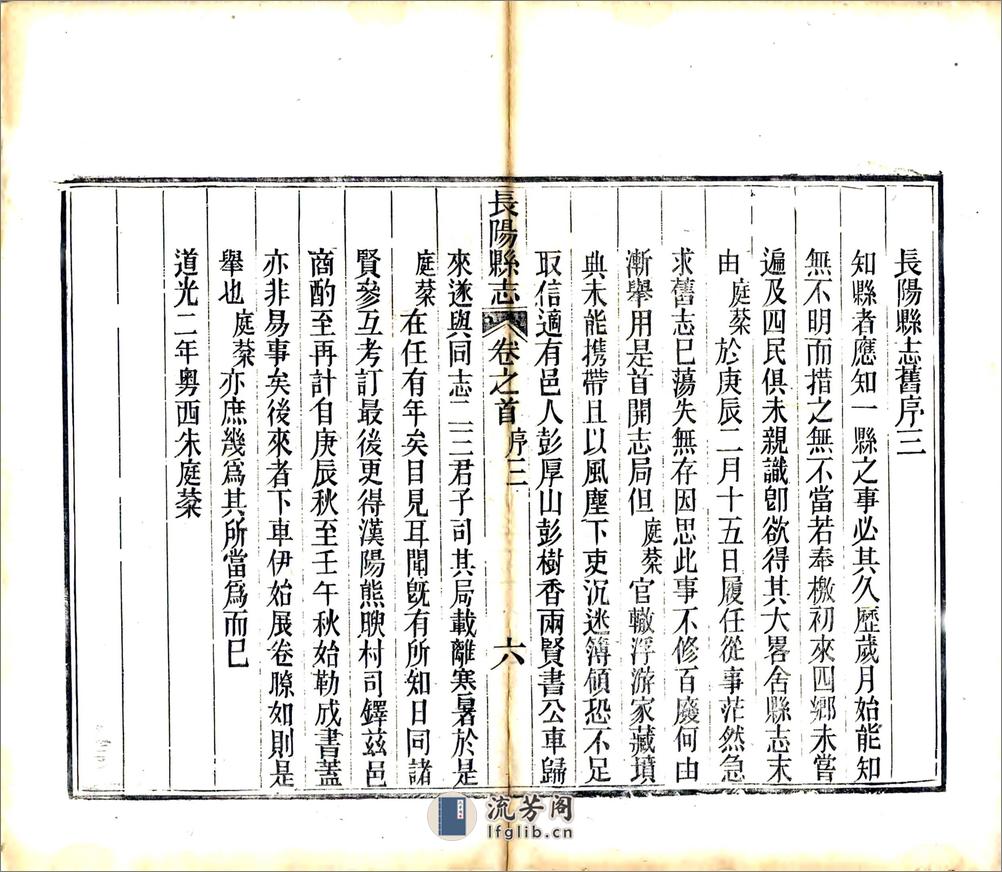 長陽縣志舊序三
知縣者應知一縣之事必其久歷歲月始能知
無不明而措之無不當若奉檄初來四鄉未嘗
遍及四民俱未親識卽欲得其大畧舍縣志末
由庭棻於庚辰二月十五日履任從事茫然急
求舊志已蕩失無存因思此事不修百廢何由
漸舉用是首開志局但庭棻官轍浮游家藏墳
典未能携帶且以風塵下吏沉迷簿領恐不足
取信適有邑人彭厚山彭樹香兩賢書公車歸
長陽縣志 卷之首 序三 六
來遂與同志二三君子司其局載離寒暑於是
庭棻在任有年矣目見耳聞旣有所知日同諸
賢參互考訂最後更得漢陽熊映村司鐸茲邑
商酌至再計自庚辰秋至壬午秋始勒成書蓋
亦非易事矣後來者下車伊始展卷瞭如則是
舉也庭棻亦庶幾爲其所當爲而已
道光二年粵西朱庭棻
流芳阁
lfglib.cn